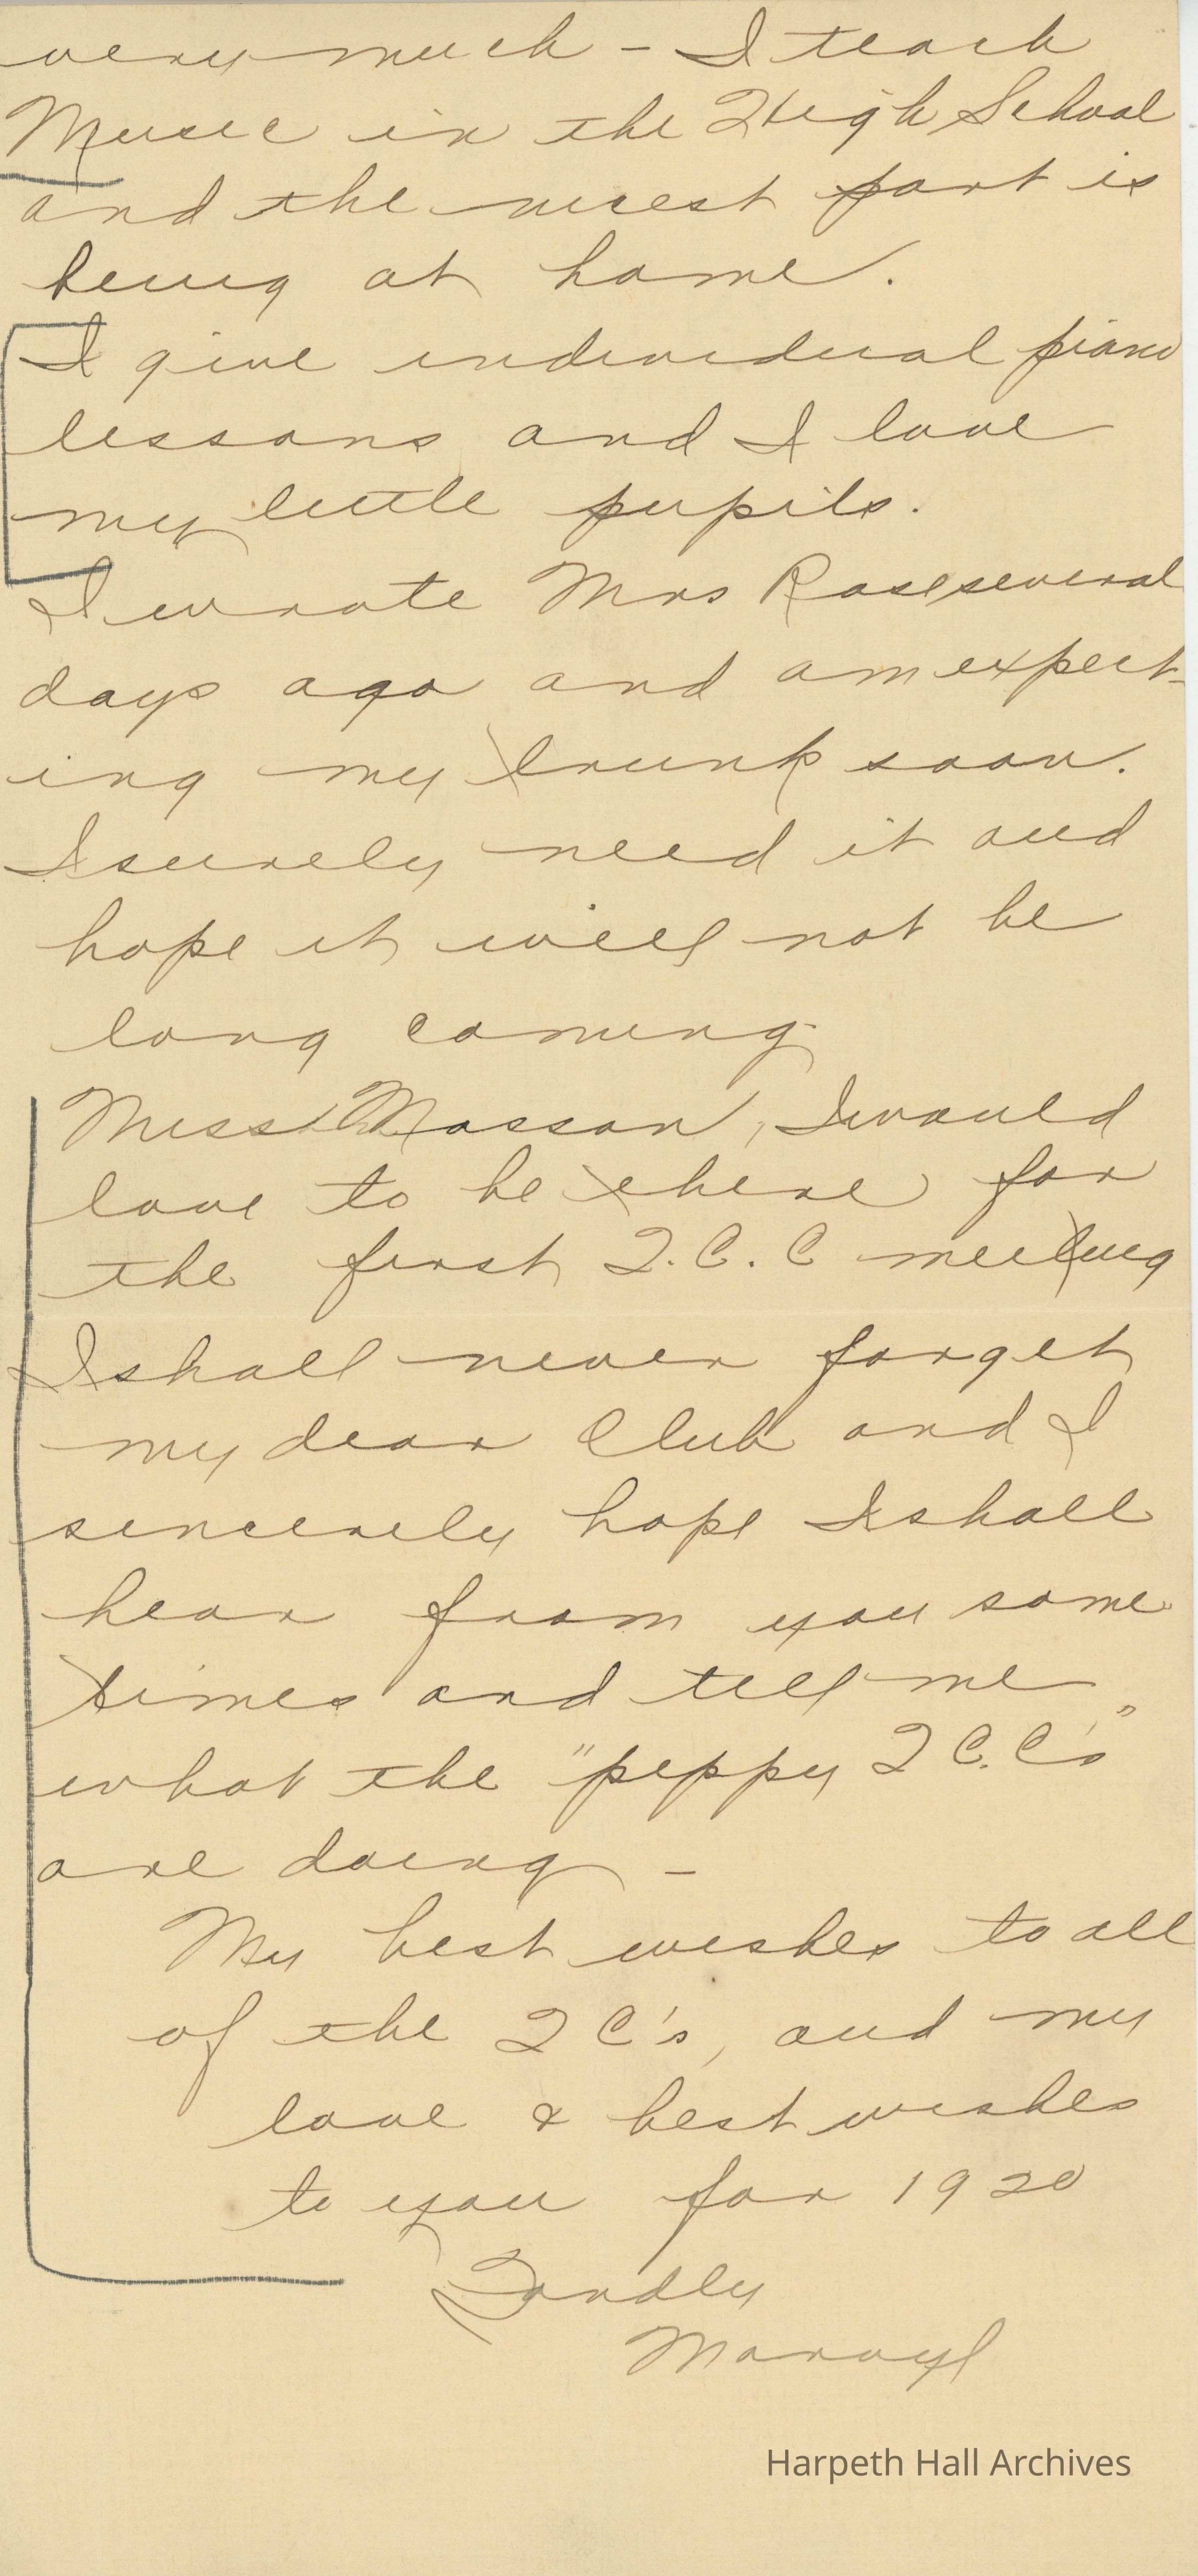 very much – I teach
Music in the High School
and the nicest part is
being at home.
I give individual piano
lessons and I love
my little pupils.
I wrote Mrs Rose several
days ago and am expect-
ing my trunk soon.
I surely need it and
hope it will not be
long coming.
Miss Masson, I would
love to be there for
the first T.C.C meeting
I shall never forget
my dear Club and I
sincerely hope I shall
hear from you some
times and tell me
what the "peppy T C.C's"
are doing –
My best wishes to all
of the T C's, and my
love & best wishes
to you for 1920
Fondly
Harpeth Hall Archives